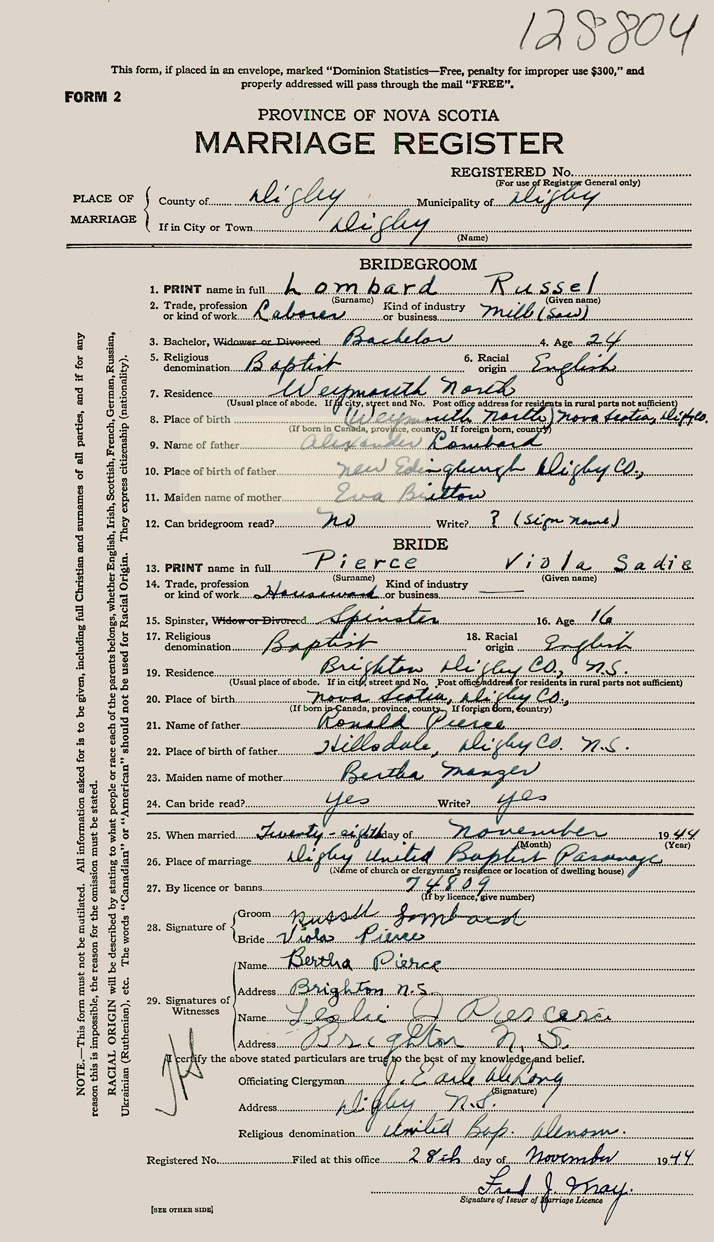 128804
This form, if placed in an envelope, marked “Dominion Statistics—Free, penalty for improper use $300,” and
properly addressed will pass through the mail “FREE”.
FORM 2
PROVINCE OF NOVA SCOTIA
MARRIAGE REGISTER
REGISTERED No.
(For use of Registrar General only)
PLACE OF MARRIAGE
County of Digby Municipality of Digby
If in City or Town Digby
(Name)
BRIDEGROOM
1. PRINT name in full Lombard Russel
(Surname) (Given name)
2. Trade, profession or kind of work Laborer Kind of industry or business Mill (Saw)
3. Bachelor, Widower or Divorced Bachelor 4. Age 24
5. Religious denomination Baptist 6. Racial origin English
7. Residence Weymouth North
(Usual place of abode. If in city, street and No. Post office address for residents in rural parts not sufficient)
8. Place of birth (Weymouth North) Nova Scotia, Digby Co.
(If born in Canada, province, county. If foreign born, country)
9. Name of father Alexander Lombard
10. Place of birth of father New Edingburgh Digby Co.,
11. Maiden name of mother Eva Britton
12. Can bridegroom read? No Write? ? (Sign name)
BRIDE
13. PRINT name in full Pierce Viola Sadie
(Surname) (Given name)
14. Trade, profession or kind of work Housework Kind of industry or business —
15. Spinster, Widow or Divorced Spinster 16. Age 16
17. Religious denomination Baptist 18. Racial origin English
19. Residence Brighton Digby Co., N.S.
(Usual place of abode. If in city, street and No. Post office address for residents in rural parts not sufficient)
20. Place of birth Nova Scotia, Digby Co.,
(If born in Canada, province, county. If foreign born, country)
21. Name of father Ronald Pierce
22. Place of birth of father Hillsdale, Digby Co. N.S.
23. Maiden name of mother Bertha
24. Can bride read? yes Write? yes
25. When married Twenty-eighth day of November 1944
(Month) (Year)
26. Place of marriage Digby United Baptist Parsonage
(Name of church or clergyman's residence or location of dwelling house)
27. By licence or banns 74809
(If by licence, give number)
28. Signature of
Groom Russell Lombard
Bride Viola Pierce
29. Signatures of Witnesses
Name Bertha Pierce
Address Brighton N.S.
Name Leslie J
Address Brighton N. S.
I certify the above stated particulars are true to the best of my knowledge and belief.
Officiating Clergyman J. Earle
(Signature)
Address Digby N.S.
Religious denomination United Bap. Denom.
Registered No. Filed at this office 28th day of November 1944
Fred J.
Signature of Issuer of Marriage Licence
[SEE OTHER SIDE]
NOTE.—This form must not be mutilated. All information asked for is to be given, including full Christian and surnames of all parties, and if for any
reason this is impossible, the reason for the omission must be stated.
RACIAL ORIGIN will be described by stating to what people or race each of the parents belongs, whether English, Irish, Scottish, French, German, Russian,
Ukrainian (Ruthenian), etc. The words “Canadian” or “American” should not be used for Racial Origin. They express citizenship (nationality).